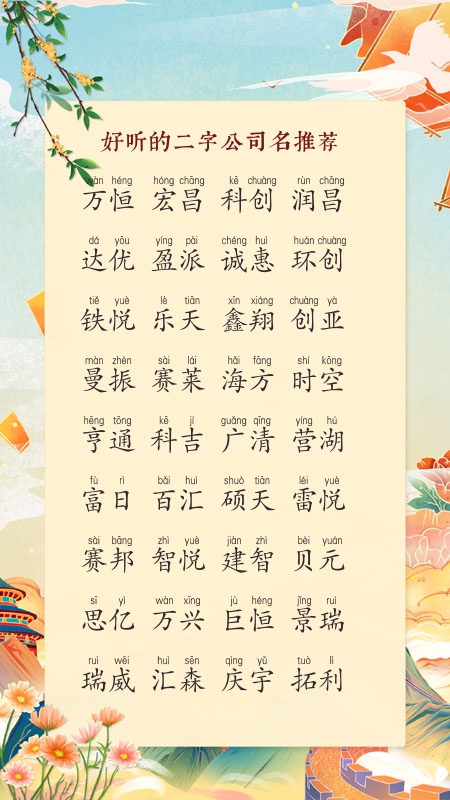 好听的二字公司名推荐
wàn héng hóng chāng kē chuàng rùn chāng
万恒 宏昌 科创 润昌
dá yōu yíng pài chéng huì huán chuàng
达优 盈派 诚惠 环创
tiě yuè lè tiān xīn xiáng chuàng yà
铁悦 乐天 鑫翔 创亚
màn zhèn sài lái hǎi fāng shí kōng
曼振 赛莱 海方 时空
hēng tōng kē jí guǎng qīng yíng hú
亨通 科吉 广清 营湖
fù rì bǎi huì shuò tiān léi yuè
富日 百汇 硕天 雷悦
sài bāng zhì yuè jiàn zhì bèi yuán
赛邦 智悦 建智 贝元
sī yì wàn xīng jù héng jǐng ruì
思亿 万兴 巨恒 景瑞
ruì wēi huì sēn qìng yǔ tuò lì
瑞威 汇森 庆宇 拓利